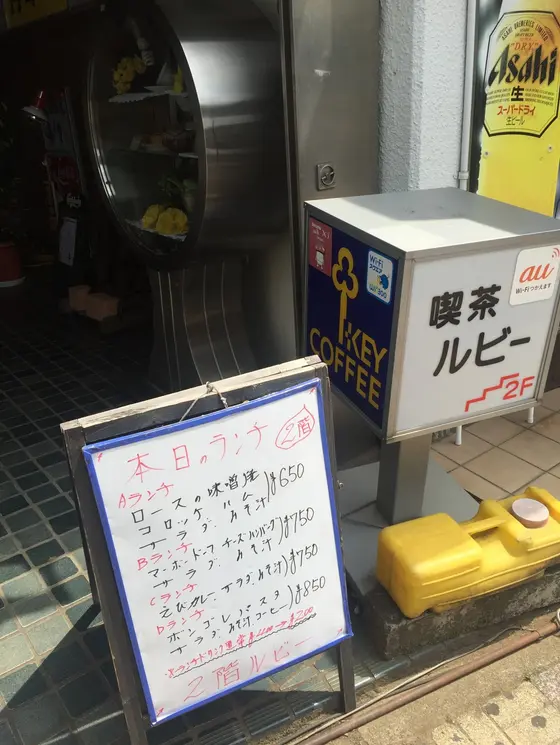 ASAHI BREWERIES LIMITED
"DRY"
Asahi
生
スーパードライ
生ビール
Wi-Fi
au
Wi-Fiつかえます
KEY
COFFEE
喫茶
ルビー
2F
本日のランチ
2階
Aランチ
ロースの味噌
コロッケ ハム
サラダ みそ汁)¥650
Bランチ
マーボドーフ チーズハンバーグ
サラダ みそ汁)¥750
Cランチ
えびカレー サラダ みそ汁)¥750
Dランチ
ボンゴレパスタ
サラダ みそ汁 コーヒー)¥850
¥200
2階ルビー